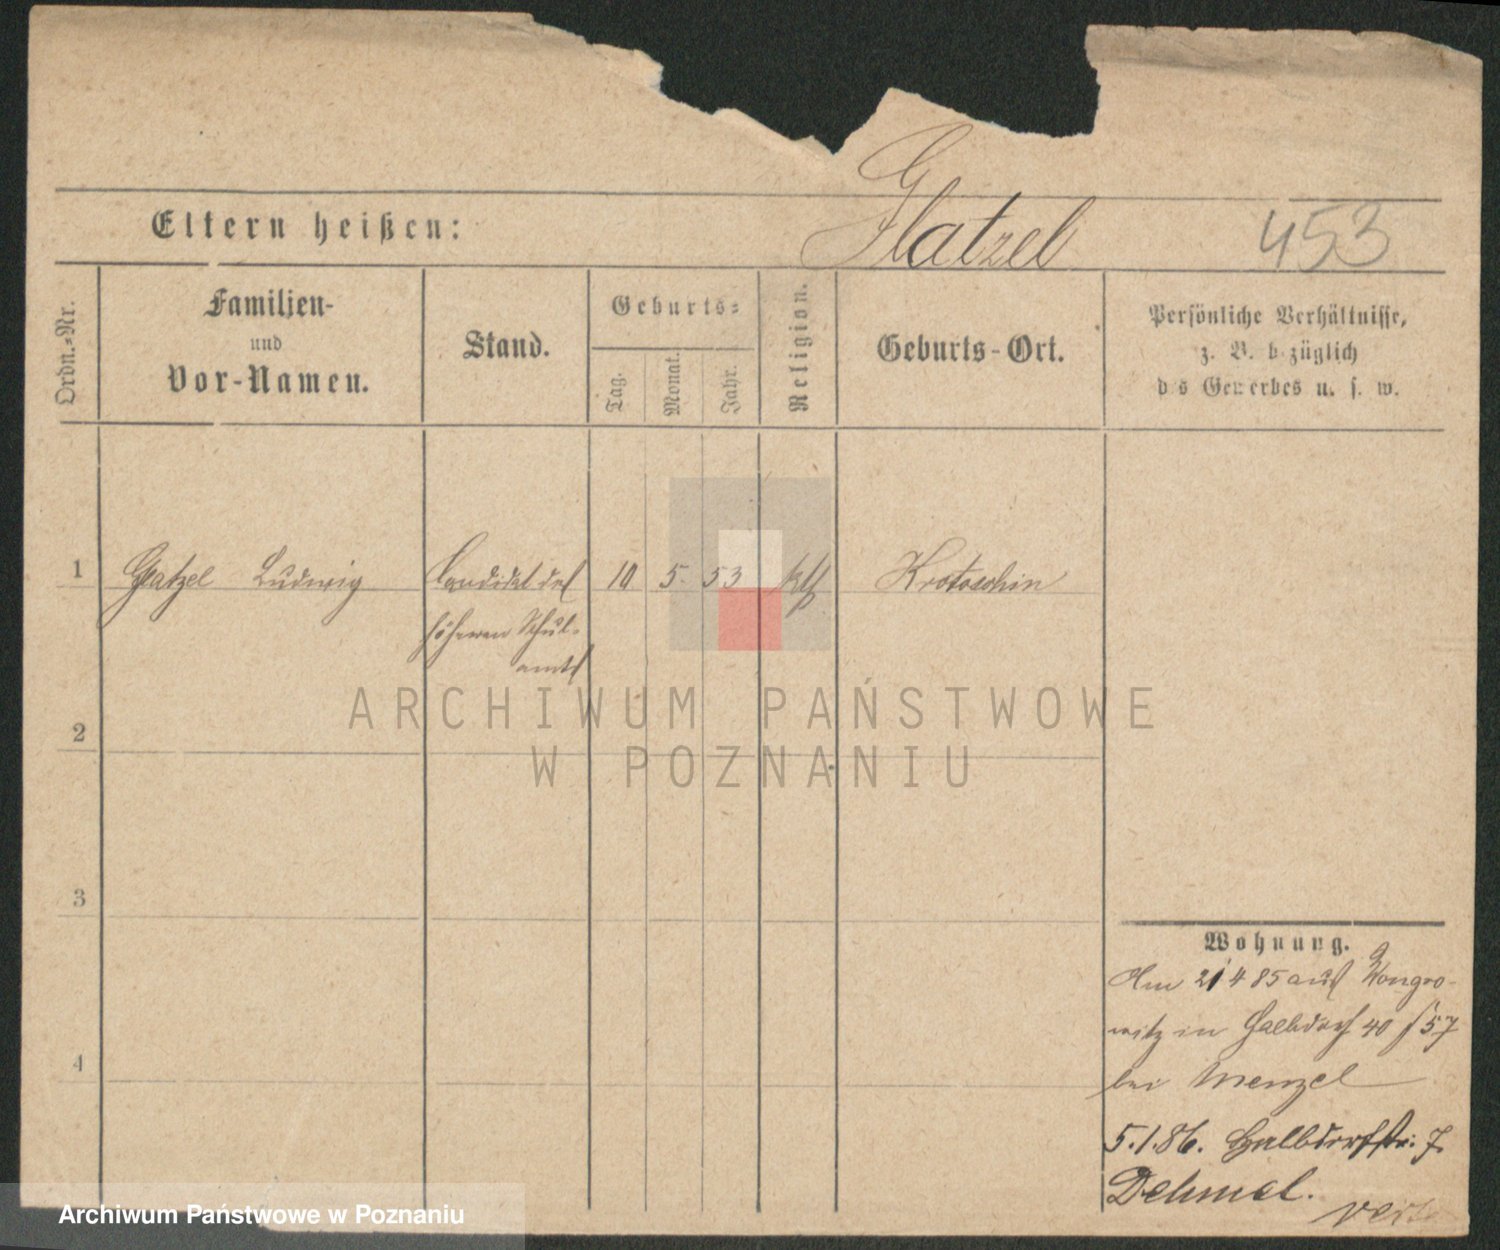 Eltern heißen:
Glatzel
453
Ordn.-Nr.
Familien-
und
Vor-Namen.
Stand.
Geburts-
Tag.
Monat.
Jahr.
Religion.
Geburts-Ort.
Persönliche Verhältnisse,
z. B. bezüglich
des Gewerbes u. s. w.
1
Glatzel Ludwig
Candidat des
höheren Schul-
amts
10
5.
53
kth
Krotoschin
2
3
4
Wohnung.
Am 21 4 85 aus Wongro-
witz in Halbdorf 40
bei Menzel
5.1.86. Halbdorfstr. 7.
Dehmel.
ARCHIWUM PAŃSTWOWE
W POZNANIU
Archiwum Państwowe w Poznaniu